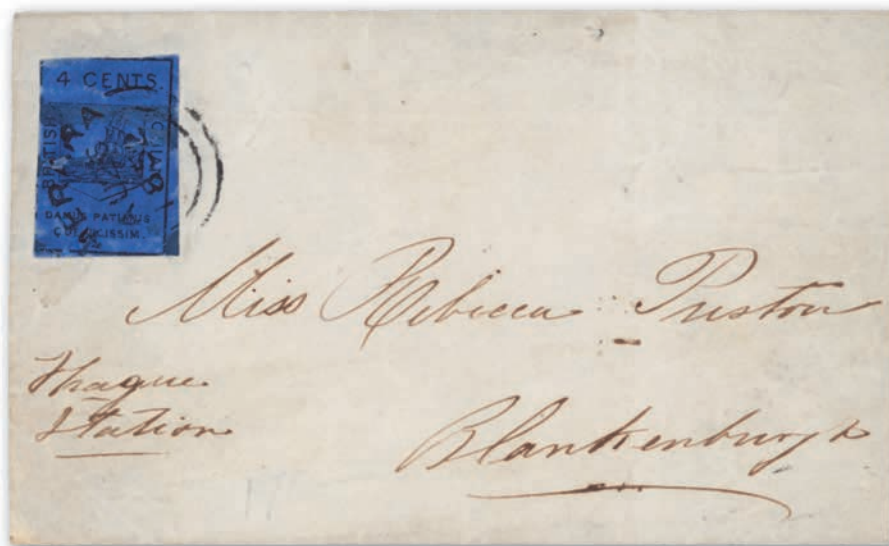 4 CENTS.
BRITISH
GUIANA.
DAMUS PATIMUS
QUE VICISSIM.
Miss Rebecca Preston
Station
Blankenburgh